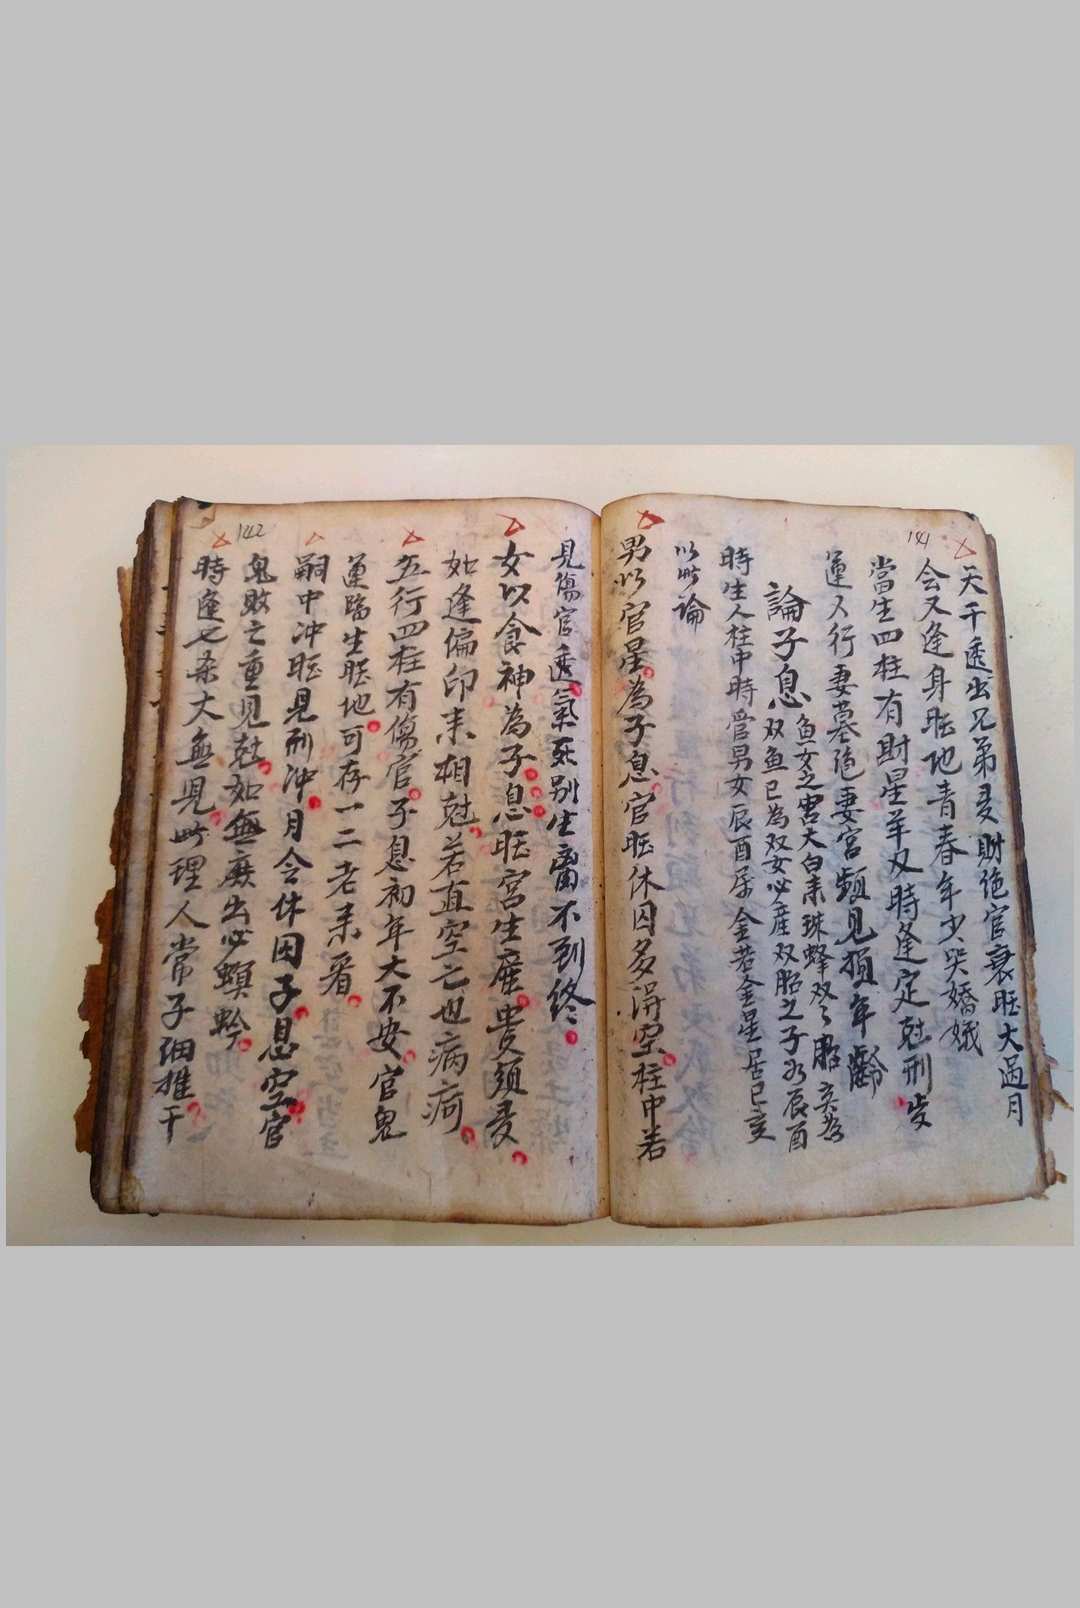 141
天干透出兄弟多財絶官衰旺大過月
令又逢身旺地青春年少哭嬌娥
當生四柱有財星羊刃時逢定尅刑岁
運入行妻墓絶妻宮頻見損年齡
論子息
魚女之宮大白耒珠蜂双之胎亥為
双魚巳為双女必産双胎之子水辰酉
時生人柱中時管男女辰酉屬金若金星居巳亥
以此論
男以官星為子息官旺休囚多淂空柱中若
142
見傷官透氣死别生離不到終
女以食神為子息旺宮生産貴須多
如逢偏印耒相尅若直空亡也病疴
五行四柱有傷官子息初年大不安官鬼
運臨生旺地可存一二老耒看
嗣中冲旺見刑冲月令休囚子息空官
鬼敗亡重見尅如無庶出必螟蛉
時逢七杀丈無児此理人常子细推干